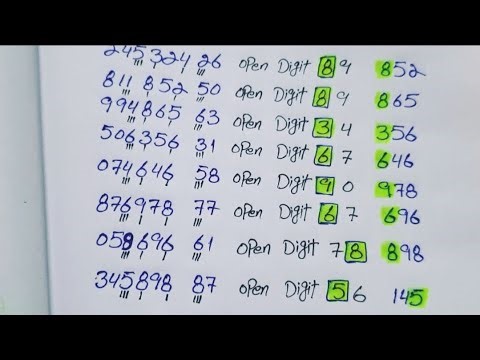 245324 26 open Digit 89 852
811 852 50 open Digit 89 865
994865 63 open Digit 34 356
506356 31 open Digit 67 646
074646 58 open Digit 90 978
876978 77 open Digit 67 696
059696 61 open Digit 78 898
345898 87 open Digit 56 145